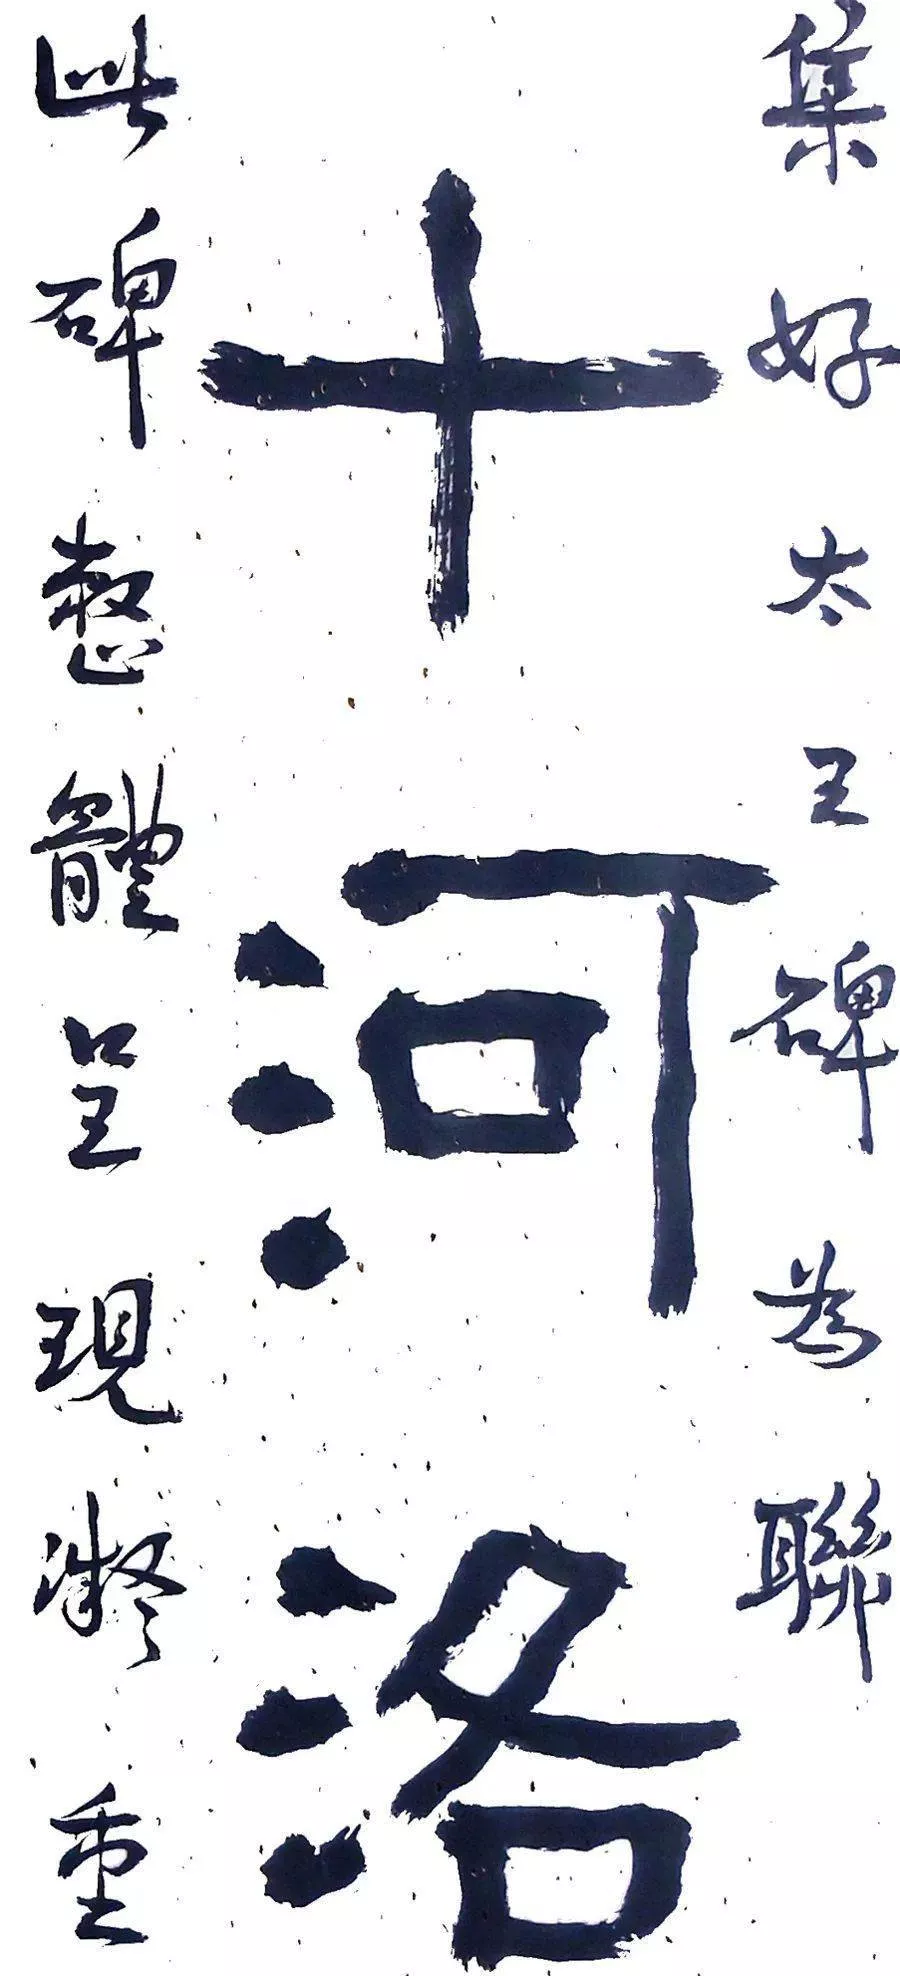 集好太王碑為聯
十河洛
此碑整體呈現凝重